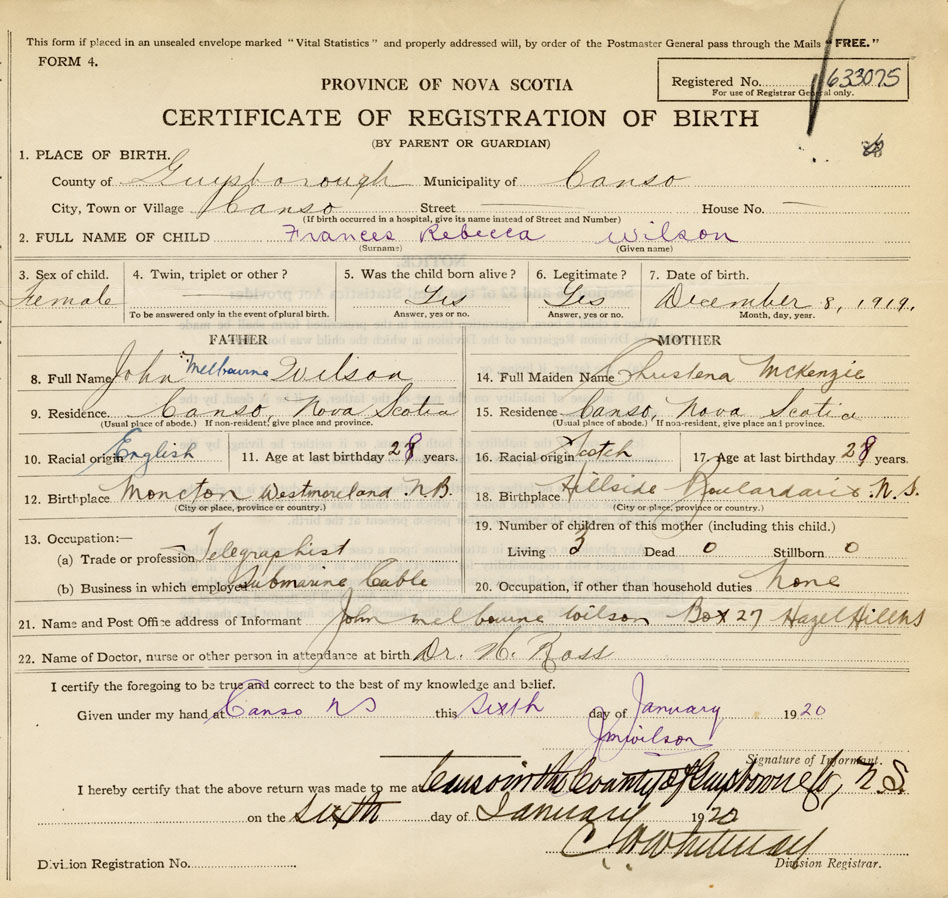 This form if placed in an unsealed envelope marked "Vital Statistics" and properly addressed will, by order of the Postmaster General pass through the Mails "FREE."
FORM 4.
PROVINCE OF NOVA SCOTIA
Registered No. 633075
For use of Registrar General only.
CERTIFICATE OF REGISTRATION OF BIRTH
(BY PARENT OR GUARDIAN)
1. PLACE OF BIRTH.
County of Guysborough Municipality of Canso
City, Town or Village Canso Street — House No. —
(If birth occurred in a hospital, give its name instead of Street and Number)
2. FULL NAME OF CHILD Frances Rebecca Wilson
(Surname) (Given name)
3. Sex of child. 4. Twin, triplet or other? 5. Was the child born alive? 6. Legitimate? 7. Date of birth.
Female — Yes Yes December 8, 1919.
To be answered only in the event of plural birth. Answer, yes or no. Answer, yes or no. Month, day, year.
FATHER
8. Full Name John Melbourne Wilson
9. Residence. Canso, Nova Scotia
(Usual place of abode.) If non-resident, give place and province.
10. Racial origin English 11. Age at last birthday 28 years.
12. Birthplace Moncton Westmoreland N.B.
(City or place, province or country.)
13. Occupation:—
(a) Trade or profession Telegraphist
(b) Business in which employed Submarine Cable
MOTHER
14. Full Maiden Name Christena McKenzie
15. Residence Canso, Nova Scotia
(Usual place of abode.) If non-resident, give place and province.
16. Racial origin Scotch 17. Age at last birthday 28 years.
18. Birthplace Hillside Boulardarie N.S.
(City or place, province or country.)
19. Number of children of this mother (including this child.)
Living 3 Dead 0 Stillborn 0
20. Occupation, if other than household duties none
21. Name and Post Office address of Informant John Melbourne Wilson Box 27 Hazel Hill NS
22. Name of Doctor, nurse or other person in attendance at birth Dr. H. Ross
I certify the foregoing to be true and correct to the best of my knowledge and belief.
Given under my hand at Canso NS this sixth day of January 1920
JMWilson
Signature of Informant.
I hereby certify that the above return was made to me at Canso in the County of Guysborough, N.S.
on the sixth day of January 1920
Whitman
Division Registration No. Division Registrar.